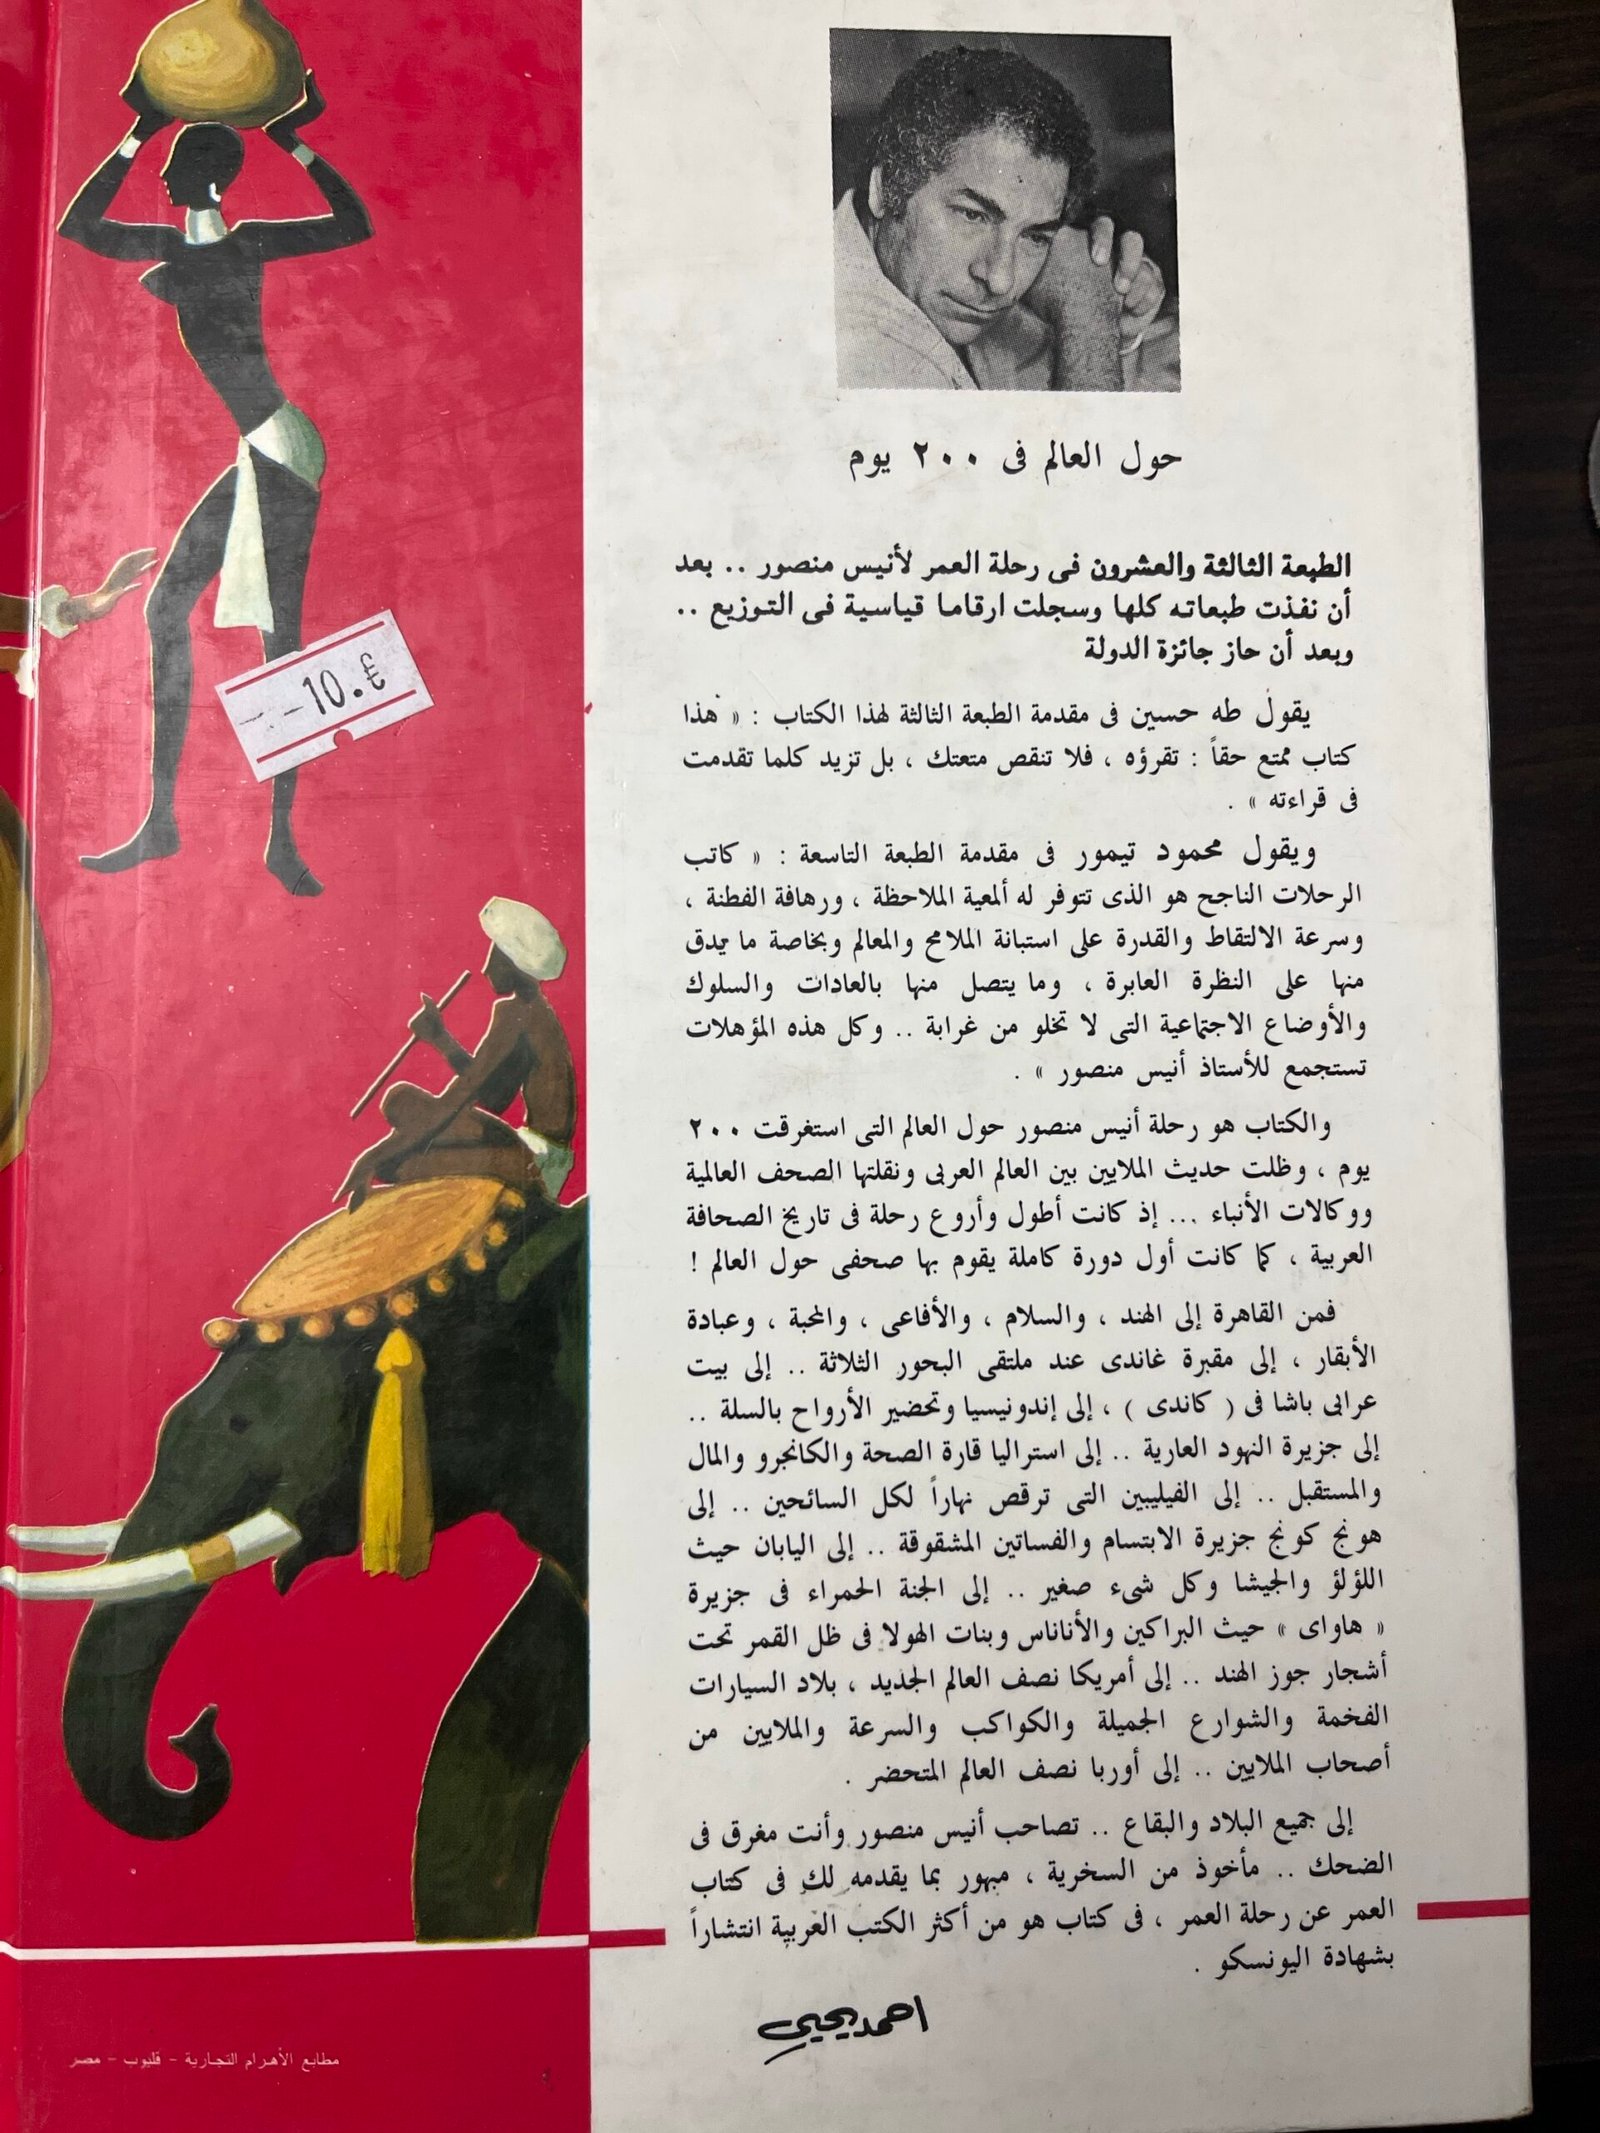 حول العالم فى ٢٠٠ يوم
الطبعة الثالثة والعشرون فى رحلة العمر لأنيس منصور .. بعد
أن نفذت طبعاته كلها وسجلت ارقاما قياسية فى التوزيع ..
وبعد أن حاز جائزة الدولة
يقول طه حسين فى مقدمة الطبعة الثالثة لهذا الكتاب : « هذا
كتاب ممتع حقاً : تقرؤه ، فلا تنقص متعتك ، بل تزيد كلما تقدمت
فى قراءته » .
ويقول محمود تيمور فى مقدمة الطبعة التاسعة : « كاتب
الرحلات الناجح هو الذى تتوفر له ألمعية الملاحظة ، ورهافة الفطنة ،
وسرعة الالتقاط والقدرة على استبانة الملامح والمعالم وبخاصة ما يدق
منها على النظرة العابرة ، وما يتصل منها بالعادات والسلوك
والأوضاع الاجتماعية التى لا تخلو من غرابة .. وكل هذه المؤهلات
تستجمع للأستاذ أنيس منصور » .
والكتاب هو رحلة أنيس منصور حول العالم التى استغرقت ٢٠٠
يوم ، وظلت حديث الملايين بين العالم العربى ونقلتها الصحف العالمية
ووكالات الأنباء ... إذ كانت أطول وأروع رحلة فى تاريخ الصحافة
العربية ، كما كانت أول دورة كاملة يقوم بها صحفى حول العالم !
فمن القاهرة إلى الهند ، والسلام ، والأفاعى ، والمحبة ، وعبادة
الأبقار ، إلى مقبرة غاندى عند ملتقى البحور الثلاثة .. إلى بيت
عرابى باشا فى ( كاندى ) ، إلى إندونيسيا وتحضير الأرواح بالسلة ..
إلى جزيرة النهود العارية .. إلى استراليا قارة الصحة والكانجرو والمال
والمستقبل .. إلى الفيليبين التى ترقص نهاراً لكل السائحين .. إلى
هونج كونج جزيرة الابتسام والفساتين المشقوقة .. إلى اليابان حيث
اللؤلؤ والجيشا وكل شىء صغير .. إلى الجنة الحمراء فى جزيرة
« هاواى » حيث البراكين والأناناس وبنات الهولا فى ظل القمر تحت
أشجار جوز الهند .. إلى أمريكا نصف العالم الجديد ، بلاد السيارات
الفخمة والشوارع الجميلة والكواكب والسرعة والملايين من
أصحاب الملايين .. إلى أوربا نصف العالم المتحضر .
إلى جميع البلاد والبقاع .. تصاحب أنيس منصور وأنت مغرق فى
الضحك .. مأخوذ من السخرية ، مبهور بما يقدمه لك فى كتاب
العمر عن رحلة العمر ، فى كتاب هو من أكثر الكتب العربية انتشاراً
بشهادة اليونسكو .
احمد يحيى
-10.£
مطابع الأهرام التجارية - قليوب - مصر